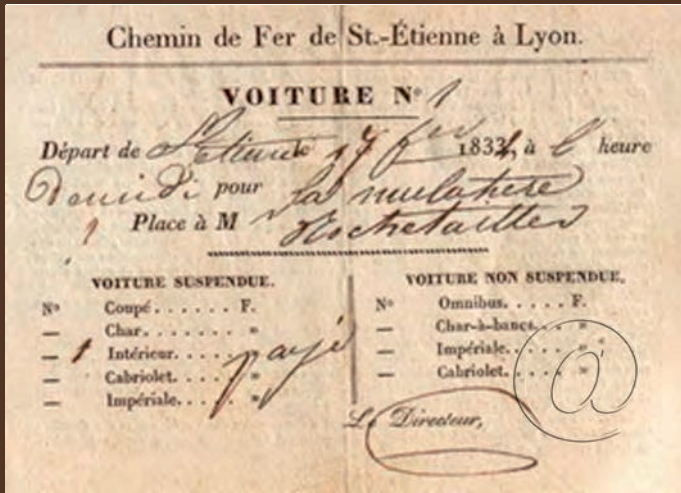 Chemin de Fer de St.-Étienne à Lyon.
VOITURE N° 1
Départ de St Etienne 17 fer 1834, à l' heure
De midi pour la mulatiere
1 Place à M r Rochetaillée
VOITURE SUSPENDUE.
N° Coupé...... F.
— Char....... »
— 1 Intérieur.... » payé
— Cabriolet.... »
— Impériale.... »
VOITURE NON SUSPENDUE.
N° Omnibus..... F.
— Char-à-bancs.. »
— Impériale.... »
— Cabriolet.... »
Le Directeur,
@